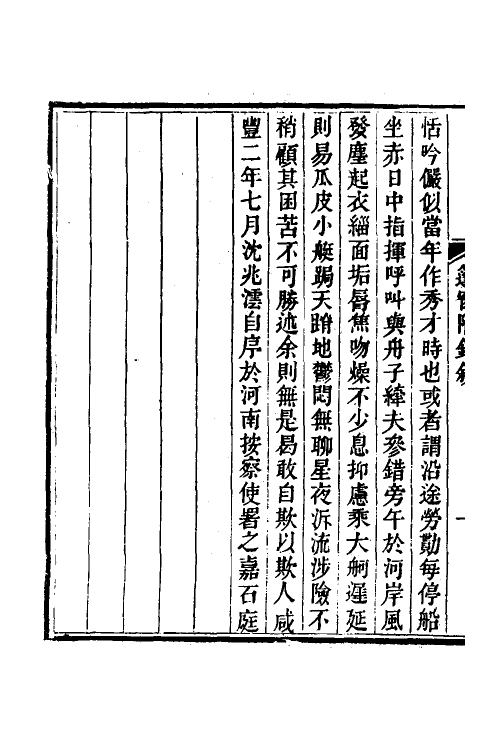 恬吟儼似當年作秀才時也或者謂沿途勞勩每停船
坐赤日中指揮呼叫與舟子縴夫參錯旁午於河岸風
發塵起衣緇面垢脣焦吻燥不少息抑慮乘大舸遲延
則易瓜皮小艇跼天蹐地鬱悶無聊星夜泝流涉險不
稍顧其困苦不可勝述余則無是曷敢自欺以欺人咸
豐二年七月沈兆澐自序於河南按察使署之嘉石庭